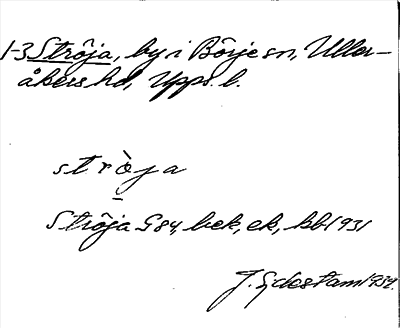 1-3 Ströja, by i Börje sn, Uller-
åkers hd, Upps. l.
ströja
Ströja G 84, bek, ek, kb 1931
J. Edestam 1932.